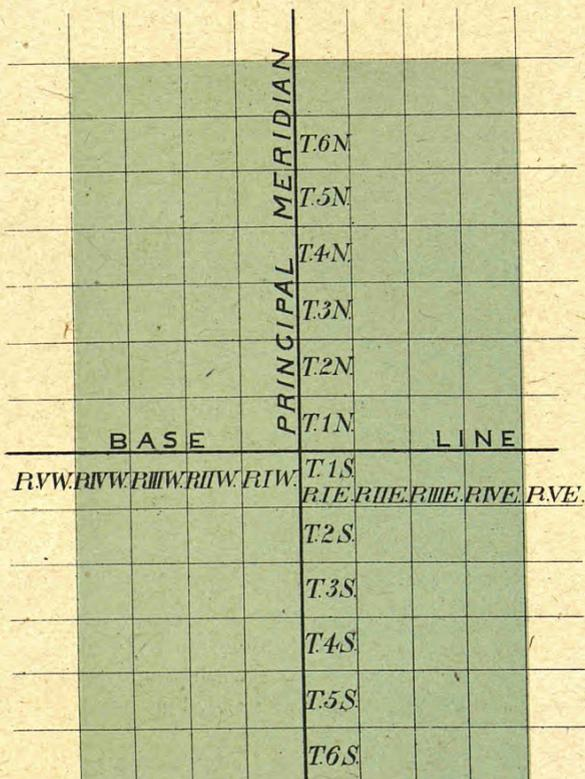 PRINCIPAL MERIDIAN
T.6N.
T.5N.
T.4N.
T.3N.
T.2N.
T.1N.
BASE LINE
R.VW. R.IVW. R.IIIW. R.IIW. R.IW. T.1S.
R.IE. R.IIE. R.IIIE. R.IVE. R.VE.
T.2S.
T.3S.
T.4S.
T.5S.
T.6S.